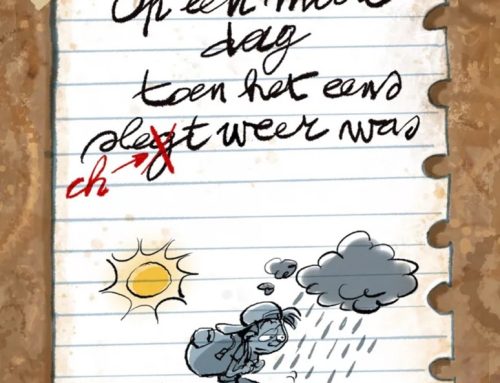 Op een mooie
dag
toen het eens
slegt weer was
ch